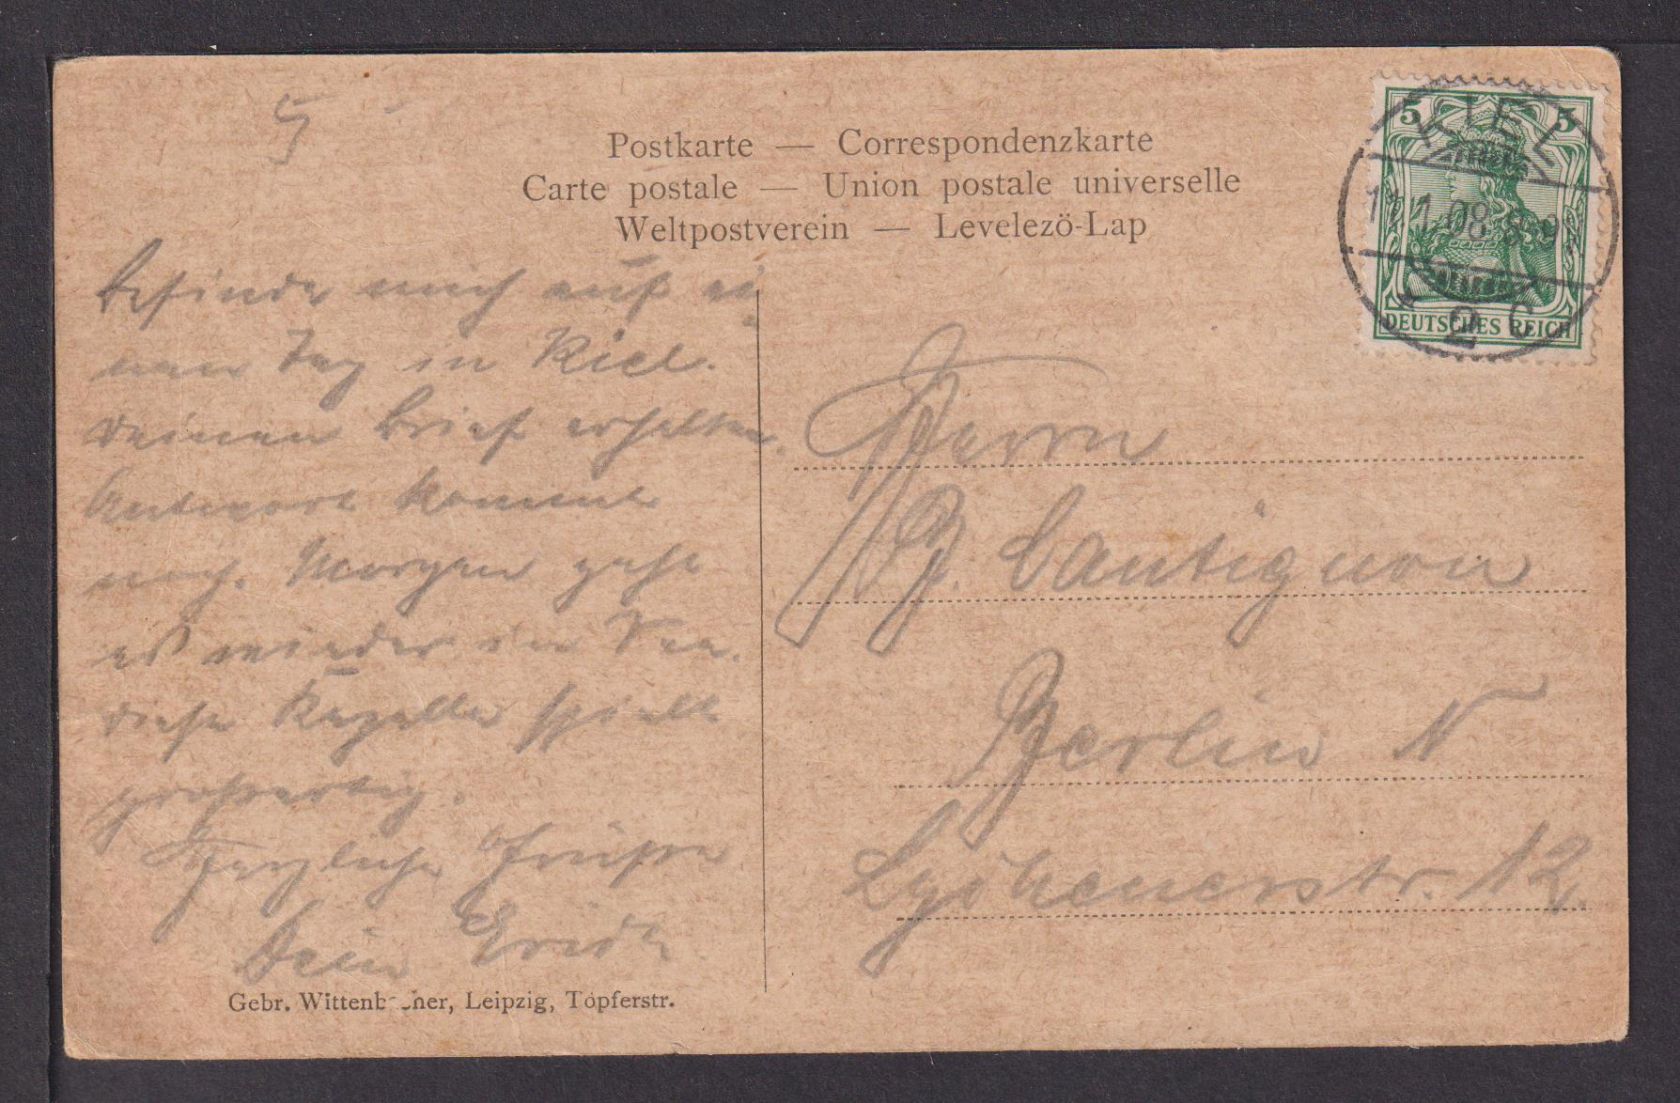 5
Postkarte — Correspondenzkarte
Carte postale — Union postale universelle
Weltpostverein — Levelezö-Lap
KIEL
11.1.08.8-9V
* 2 c
5 5
DEUTSCHES REICH
befinde mich auf ei
nen Tag in Kiel.
deinen Brief erhalten.
Antwort kommt
noch. Morgen geht
es wieder in See.
diese Kapelle spielt
großartig.
Herzliche Grüße
Dein
Herrn
G. Cantignon
Berlin N
Lychenerstr. 12.
Gebr. Wittenb ner, Leipzig, Töpferstr.